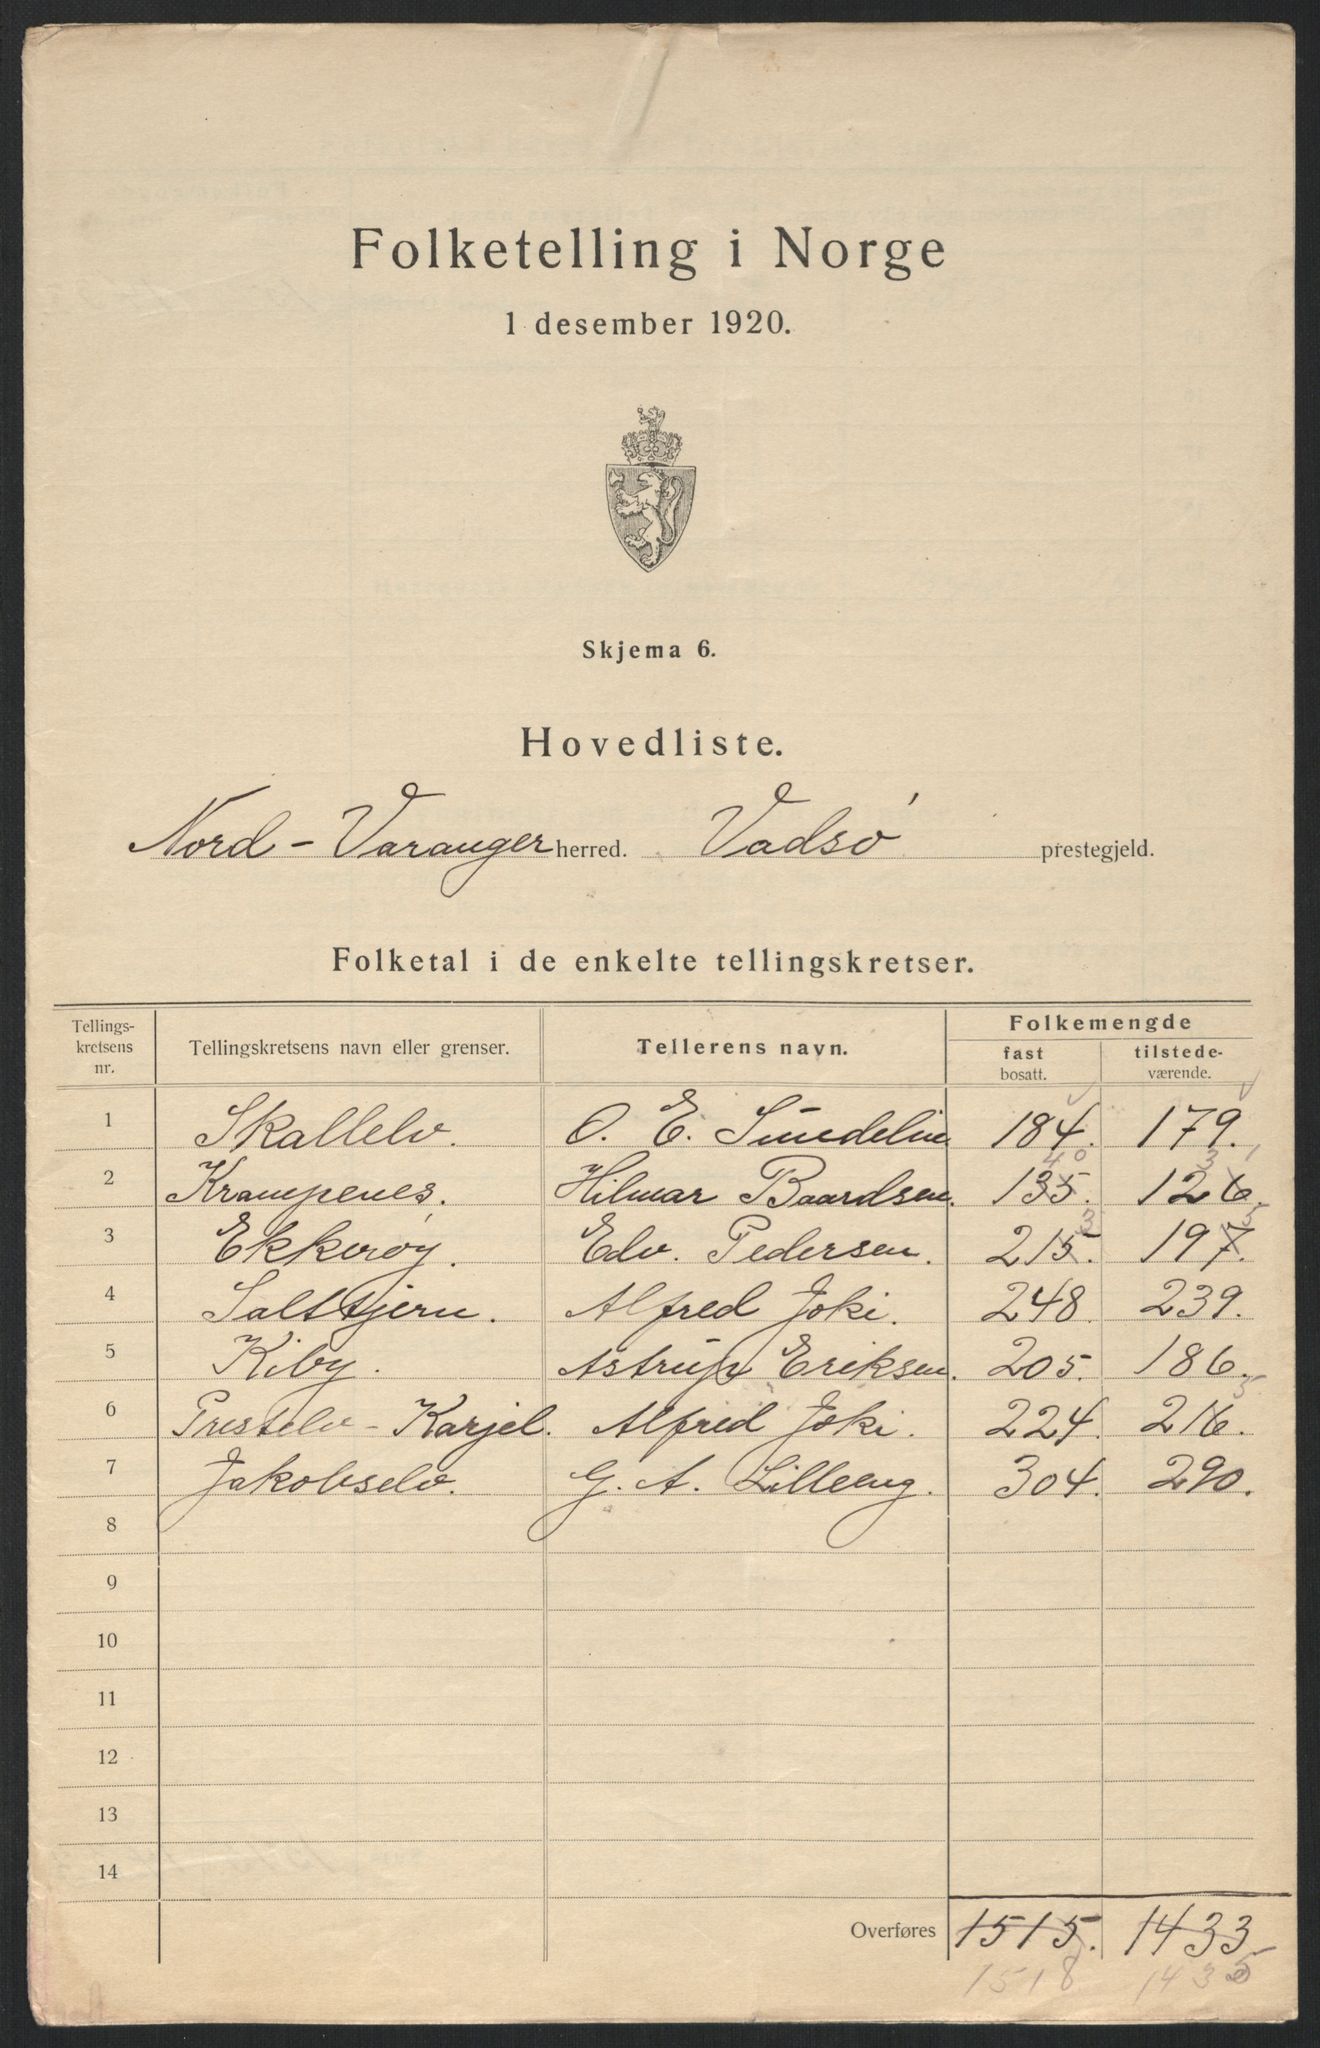 Folketelling i Norge
1 desember 1920.
Skjema 6.
Hovedliste.
Nord-Varanger herred. Vadsø prestegjeld.
Folketal i de enkelte tellingskretser.
Tellings-kretsens nr. Tellingskretsens navn eller grenser. Tellerens navn. Folkemengde
fast bosatt. tilstede-værende.
1 Skallelv. O. E. 184. 179.
40 3 1
2 Krampenes. Hilmar Baardsen. 135. 126.
3 5
3 Ekkerøy. Edv. Pedersen. 215. 197.
4 Salttjern. Alfred Joki. 248 239.
5 Kiby. Astrup Eriksen. 205. 186.
5
6 Prestelv - Karjel. Alfred Joki. 224. 216.
7 Jakobselv. G. A. Lilleeng. 304. 290.
8
9
10
11
12
13
14
Overføres 1515. 1433
1518 1435